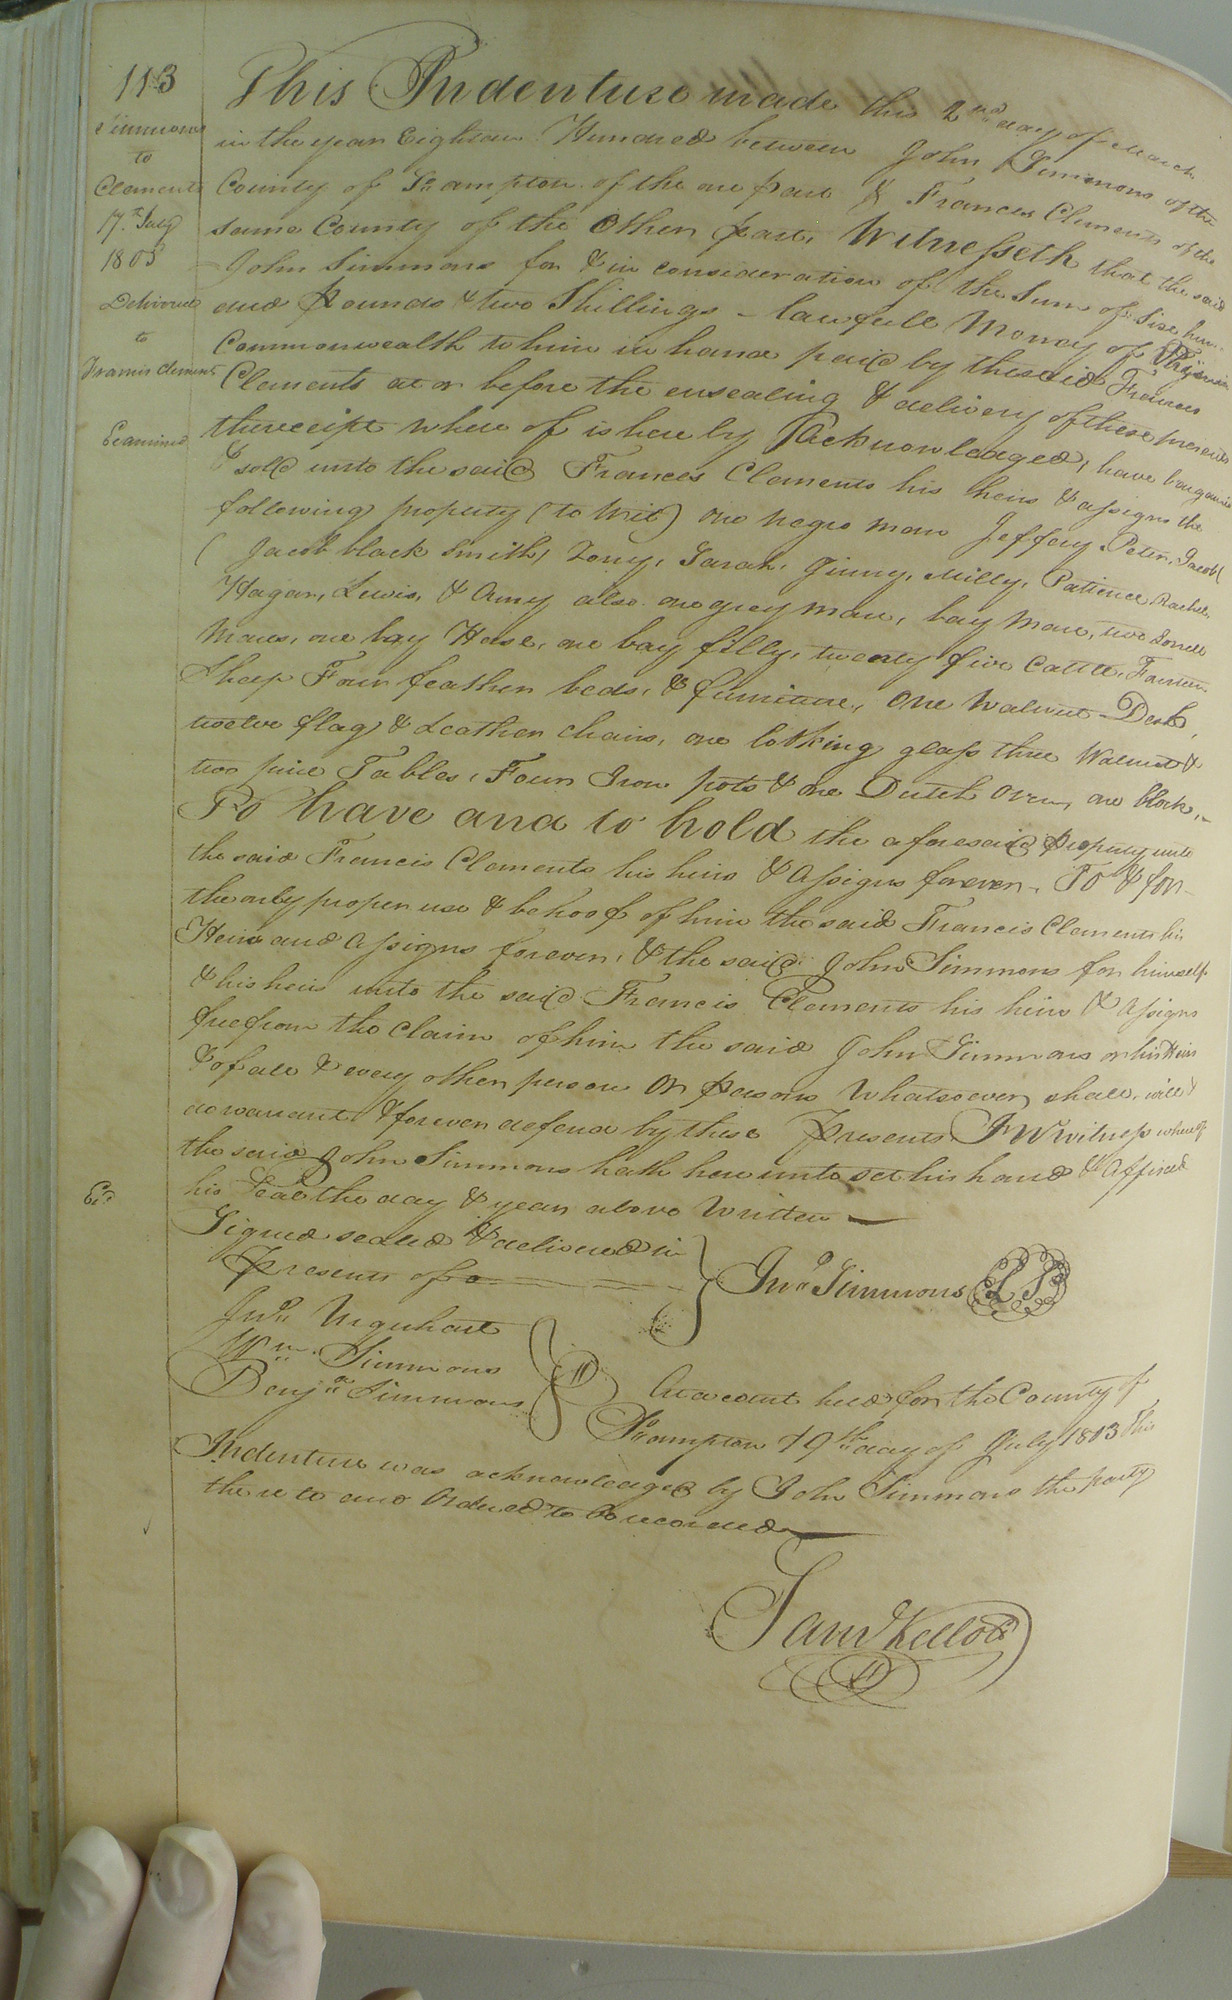 113
Simmons
to
Clements
17th July
1803
Delivered
to
Francis Clements
Examined
Ex.
This Indenture made this 2nd day of March
in the year Eighteen Hundred between John Simmons of the
County of So.ampton of the one part & Frances Clements of the
same County of the Other part, Witnesseth that the said
John Simmons for & in consideration of the Sum of Six hun-
dred Pounds & two Shillings - lawfull Money of Virginia
Commonwealth to him in hand paid by the said Frances
Clements at or before the ensealing & delivery of these presents
the receipt where of is here by Acknowledged, have bargained
& sold unto the said Frances Clements his heirs & assigns the
following property (to Wit) one negro man Jeffery, Peter, Jacob
( Jacob black Smith, Tony, Sarah, Jinny, Milly, Patience, Rachel,
Hagar, Lewis, & Amy also one grey mare, bay Mare, two Sorrell
Mares, one bay Horse, one bay filly, twenty five Cattle, Fourteen
Sheep Four feather beds, & furniture, One Walnut Desk,
twelve flag & Leather chairs, one looking glass three Walnut &
two pine Tables, Four Iron pots & one Dutch Oven, one block,
To have and to hold the aforesaid property unto
the said Francis Clements his heirs & Assigns forever, To & for
the only proper use & behoof of him the said Francis Clements his
Heirs and Assigns forever, & the said John Simmons for himself
& his heirs unto the said Francis Clements his heirs & Assigns
free from the Claim of him the said John Simmons or his Heirs
& of all & every other person Or Persons Whatsoever, shall, will &
do warrant & forever defend by these Presents In Witness whereof
the said John Simmons hath here unto set his hand & Affixed
his Seal the day & year above Written
Signed sealed & delivered in
Presents of
Jno. Simmons LS
Jno. Urquhart
Wm. Simmons
Benja. Simmons
At a court held for the County of
So.ampton 19th day of July 1803 This
Indenture was acknowledged by John Simmons the party
there to and Ordered to be recorded
Saml Kello Cc